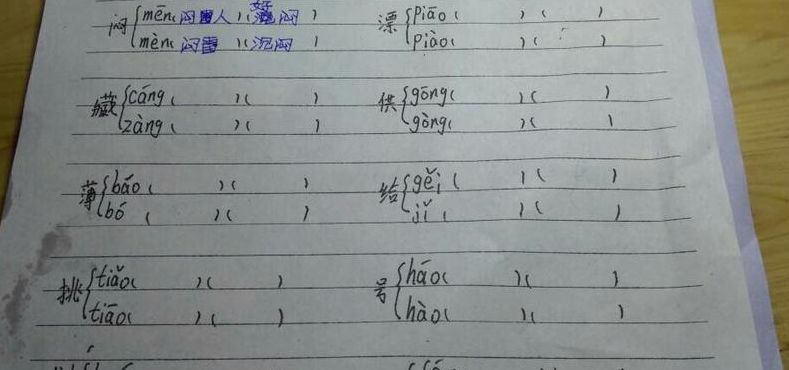 闷 mēn(闷雷人)(好闷) 漂 piāo( )( )
mèn(闷雷)(沉闷) piào( )( )
藏 cáng( )( ) 供 gōng( )( )
zàng( )( ) gòng( )( )
薄 báo( )( ) 给 gěi( )( )
bó( )( ) jǐ( )( )
挑 tiǎo( )( ) 号 háo( )( )
tiāo( )( ) hào( )( )